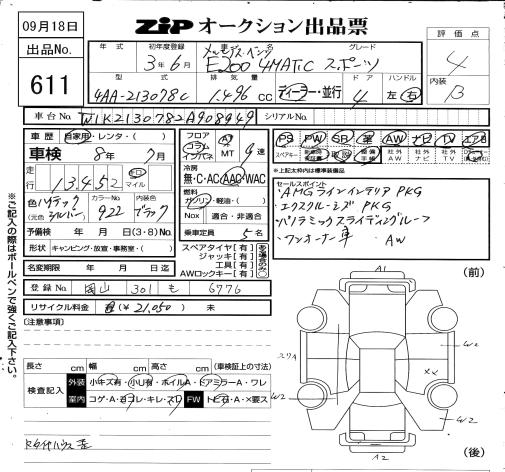 09月18日
ZIP オークション出品票
出品No.
611
年式
初年度登録
3年6月
車名
メルセデス・ベンツ
グレード
E200 4MATIC スポーツ
評価点
4
内装
B
型式
4AA-213078C
排気量
1.496 cc
ディーラー・並行
ドア
4
ハンドル
左 右
車台No.
W1K2130782A908949
シリアルNo.
車歴
自家用・レンタ・( )
車検
8年 7月
走行
13,452
キロ マイル
色
ブラック
(元色 シルバー)
カラーNo.
922
内装色
ブラック
予備検 年 月 日(3・8)No.
形状 キャンピング・放宣・事務室・( )
名変期限 年 月 日迄
フロア
コラム
インパネ
AT
MT
9速
冷房
無・C・AC・AAC・WAC
燃料
ガソリン・軽油・( )
Nox 適合・非適合
乗車定員 5名
スペアタイヤ【有】
ジャッキ【有】
工具【有】
AWロックキー【有】
PS PW SR 革 AW ナビ TV エアB
スペアキー
取説
整備手帳
社外AW
社外ナビ
社外TV
★上記太枠内は標準装備品
セールスポイント
・AMGラインインテリア PKG
・エクスクルーシブ PKG
・パノラミックスライディングルーフ
・ワンオーナー車 AW
登録No.
岡山 301 も 6776
リサイクル料金
(¥21,050) 未
[注意事項]
長さ cm 幅 cm 高さ cm (車検証上の寸法)
検査記入
外装
小キズ有・小U有・ホイルA・ドアミラーA・ワレ
室内
コゲ・A・ヨゴレ・キレ・スレ
FW
トビ石・A・X要ス
※ご記入の際はボールペンで強くご記入下さい。
(前)
A1
W2
W2
XX
W2
W2
A2
(後)